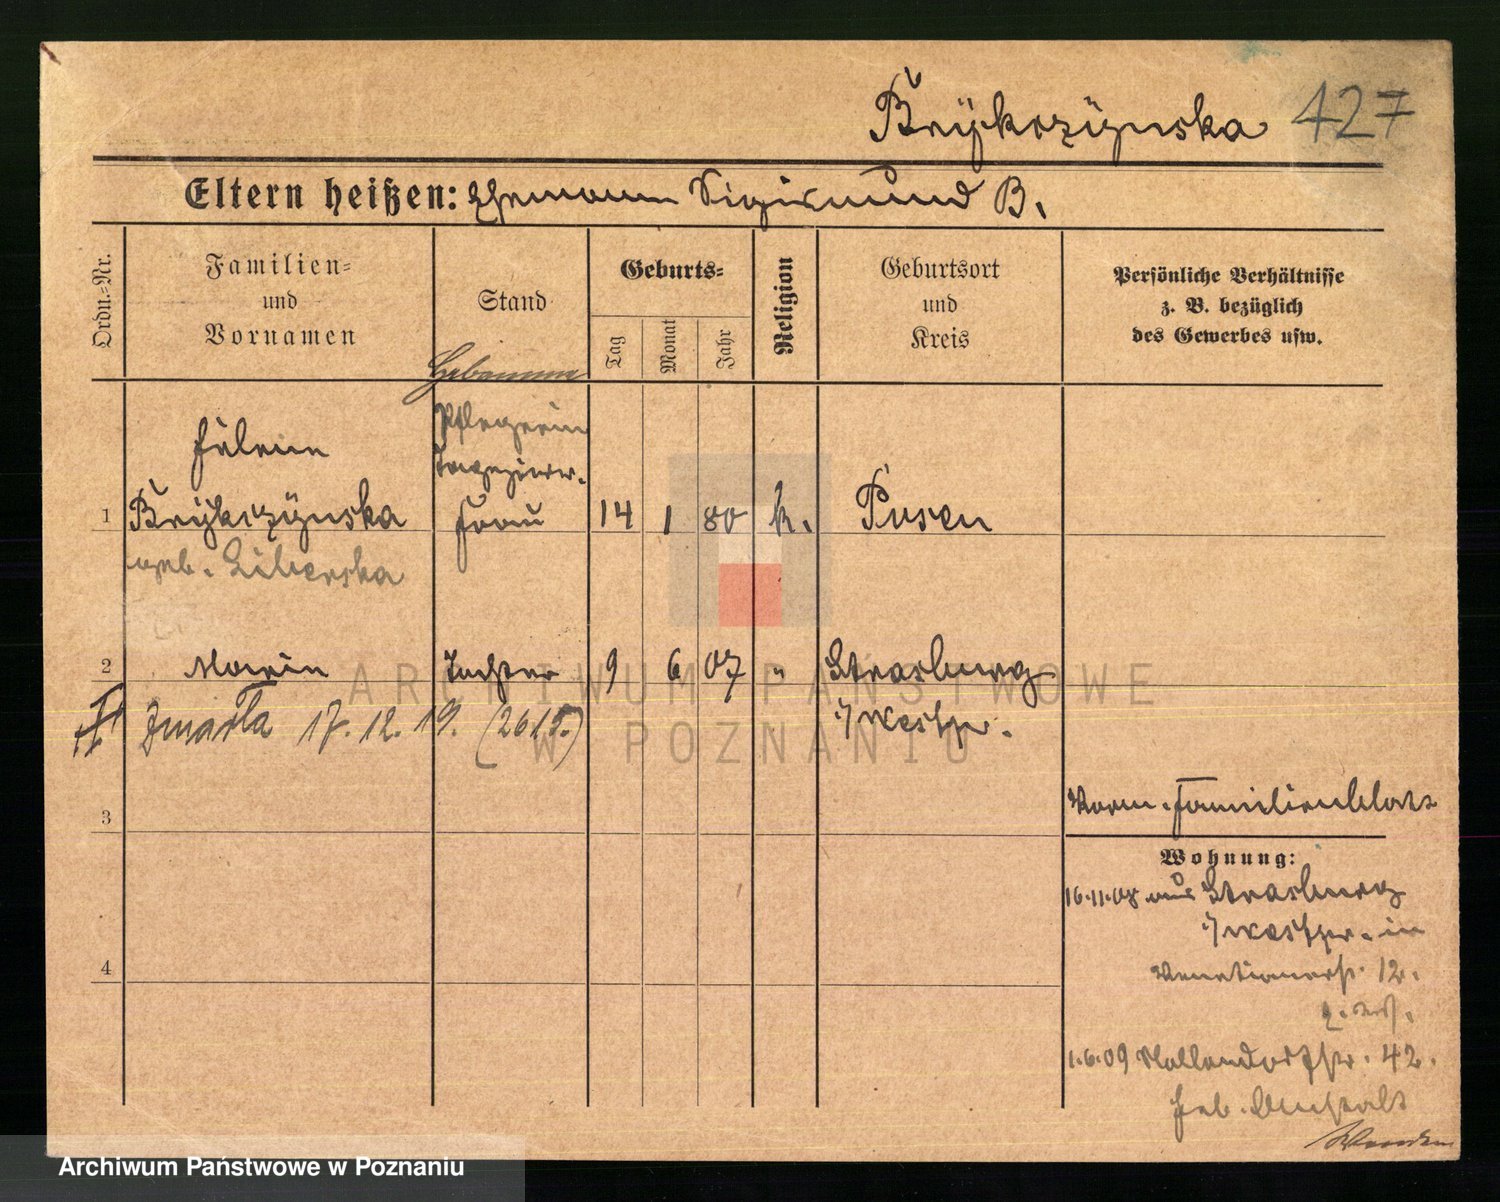 Brÿkczÿnska 427
Eltern heißen: Ehemann Sigismund B.
Ordn.-Nr.
Familien-
und
Vornamen
Stand
Geburts-
Tag
Monat
Jahr
Religion
Geburtsort
und
Kreis
Persönliche Verhältnisse
z. B. bezüglich
des Gewerbes usw.
Hebamme
Pflegerin
Tapezierer-
frau
Helene
1 Brÿkczÿnska 14 1 80 k. Posen
geb. Liberska
2 Marie Tochter 9 6 07 " Strasburg
i/Westpr.
Zmarła 17.12.19. (2615.)
3
4
Vorm. Familienblatt
Wohnung:
16.11.08 aus Strasburg
i/Westpr. in
Venetianerstr. 12.
1.6.09 Mollendorfstr. 42.
Heb. Anstalt
ARCHIWUM PAŃSTWOWE
W POZNANIU
Archiwum Państwowe w Poznaniu